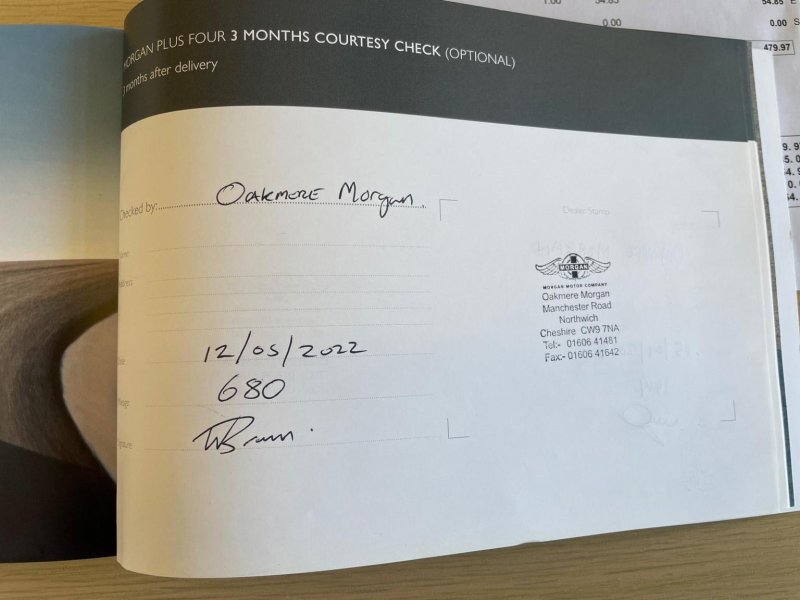 MORGAN PLUS FOUR 3 MONTHS COURTESY CHECK (OPTIONAL)
3 months after delivery
Checked by: Oakmere Morgan
Dealer Stamp
MORGAN
MORGAN MOTOR COMPANY
Oakmere Morgan
Manchester Road
Northwich
Cheshire CW9 7NA
Tel:- 01606 41481
Fax:- 01606 41642
Name
Address
Date 12/05/2022
Mileage 680
Signature
1.00 54.85
54.85 E
0.00
0.00 S
479.97